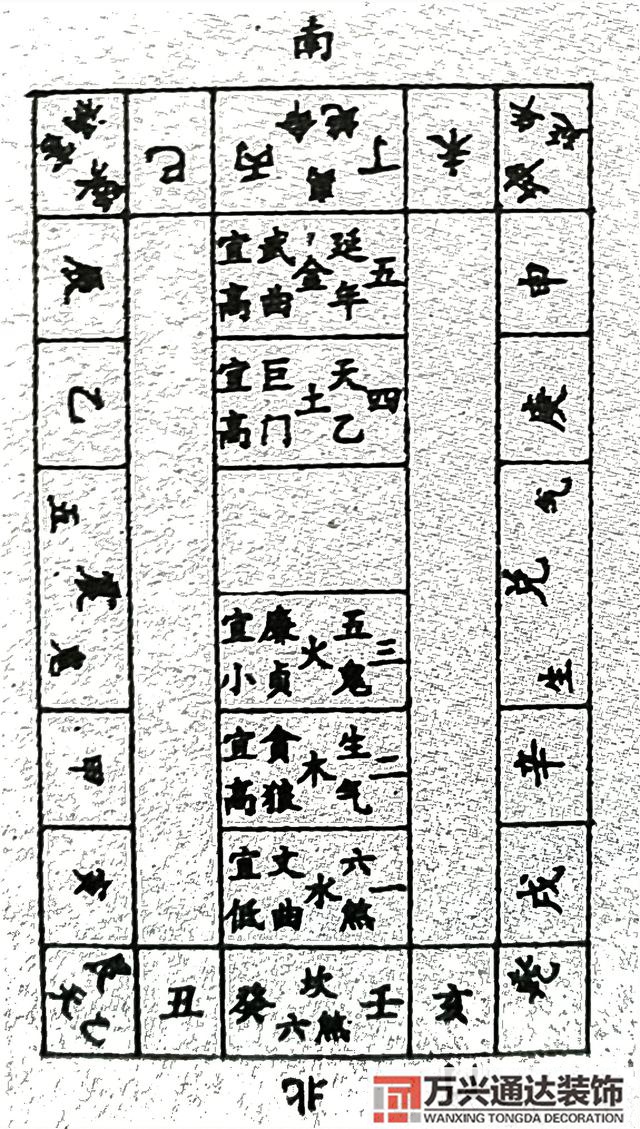 南
巳
丙
丁
命绝
未
辰
宜高
武曲
金
延年
五
申
乙
宜高
巨门
土
天乙
四
庚
五
震
鬼
气
兑
生
宜小
廉贞
火
五鬼
三
甲
宜高
贪狼
木
生气
二
辛
寅
宜低
文曲
水
六煞
一
戌
艮
天乙
丑
癸
坎
六煞
壬
亥
乾
北
万兴通达装饰
WANXING TONGDA DECORATION